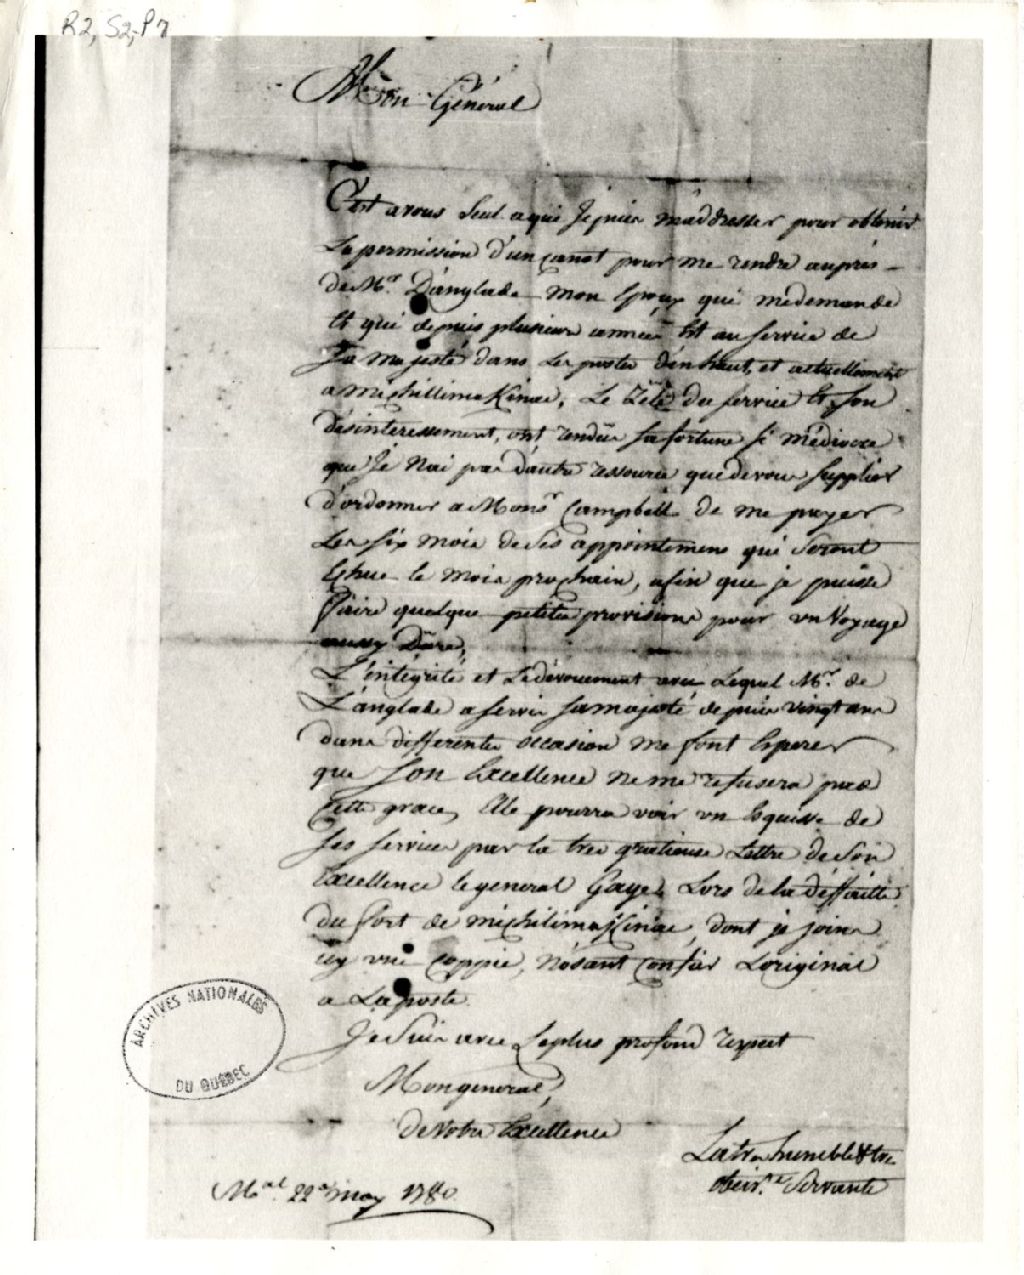 R2, S2, P7
Mon Général
C'est a vous seul a qui Je puis m'addresser pour obtenir
La permission d'un canot pour me rendre auprés
de Mr. D'anglade mon Epoux qui me demande
Et qui depuis plusieurs années Est au service de
Sa majesté dans Les postes d'en haut, et actuellement
a Michillimakinac, Le Zéle du service Et son
désinteressement, ont rendus sa fortune si médiocre
que Je N'ai pas d'autre ressource que de vous supplier
d'ordonner a Monsr Campbell de me payer
Les six mois de ses appointemens qui seront
Echue le mois prochain, afin que je puisse
faire quelque petites provisions pour un Voyage
aussy
L'intégrité et Le dévouement avec Lequel Mr. de
L'anglade a servis sa majesté depuis vingt ans
dans differentes occasion me font Esperer
que Son Excellence ne me refusera pas
Cette grace, Elle pourra voir un Esquisse de
ses services par la tres gratieuse Lettre de Son
Excellence le general Gage, Lors de la déffaitte
du fort de Michilimakinac, dont je joins
icy une coppie, N'osant confier L'original
a La poste.
Je Suis avec Le plus profond respect
Mon general,
de Votre Excellence
La trs humble & trs
obeiste. Servante
Mal. 22e may 1780
ARCHIVES NATIONALES
DU QUÉBEC